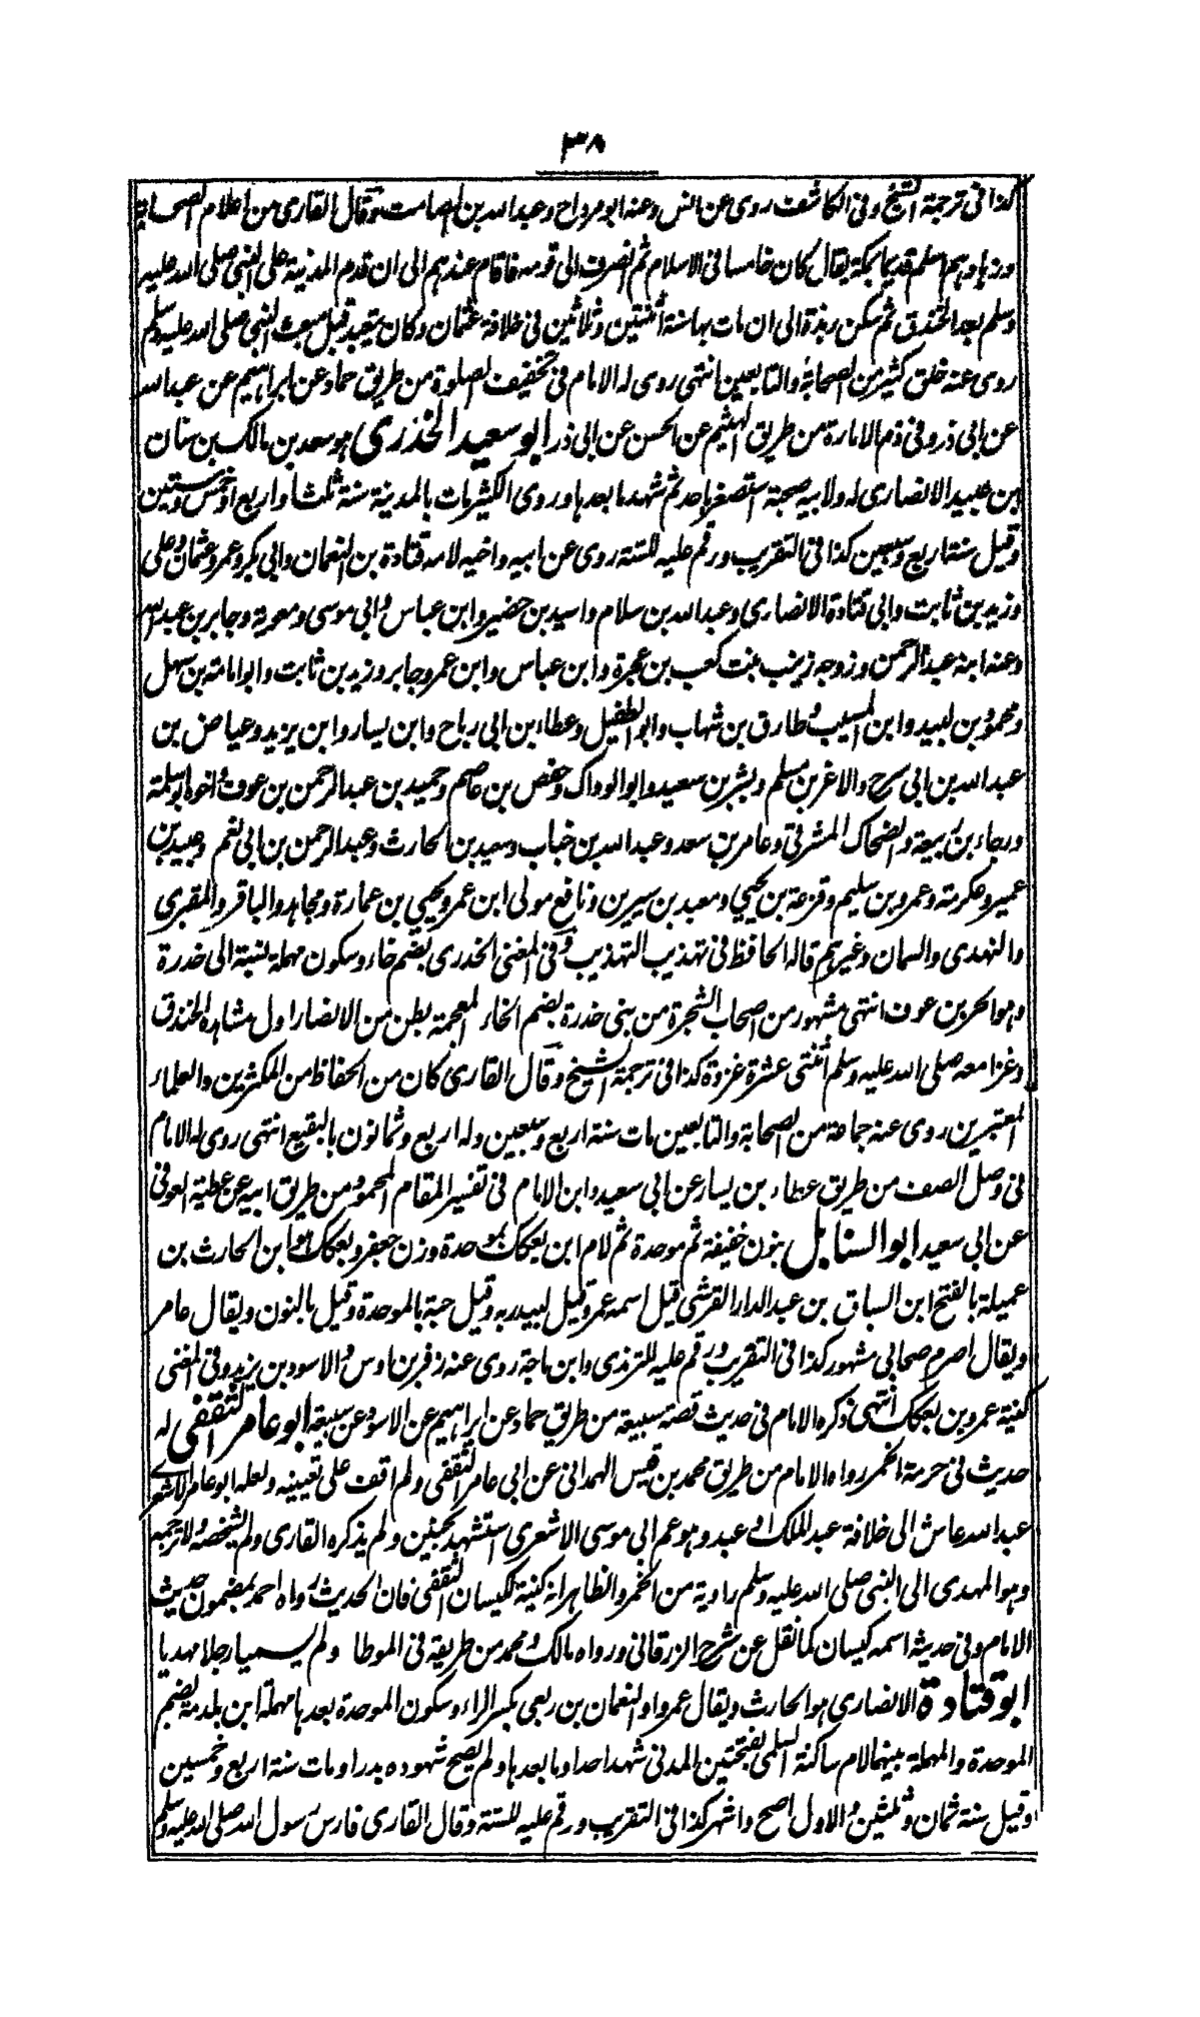 ٣٨
كذا فى ترجمة الشيخ وفى الكاشف روى عن انس وعنه ابو مرواح وعبد الله بن الصامت وقال القارى من اعلام الصحابة
وزهادهم اسلم قديما بمكة يقال كان خامسا فى الاسلام ثم انصرف الى قومه فاقام عندهم الى ان قدم المدينة على النبى صلى الله عليه
وسلم بعد الخندق ثم سكن ربذة الى ان مات بها سنة اثنتين وثلاثين فى خلافة عثمان وكان يتعبد قبل مبعث النبى صلى الله عليه وسلم
روى عنه خلق كثير من الصحابة والتابعين انتهى روى له الامام فى تخفيف الصلوة من طريق حماد عن ابراهيم عن عبد الله
عن ابى ذر وفى ذم الامارة من طريق الهيثم عن الحسن عن ابى ذر ابو سعيد الخدرى هو سعد بن مالك بن سنان
ابن عبيد الانصارى له ولابيه صحبة استصغر باحد ثم شهد ما بعدها وروى الكثير مات بالمدينة سنة ثلث او اربع او خمس وستين
وقيل سنة اربع وسبعين كذا فى التقريب ورقم عليه للستة روى عن ابيه واخيه لامه قتادة بن النعمان وابى بكر وعمر وعثمان وعلى
وزيد بن ثابت وابى قتادة الانصارى وعبد الله بن سلام واسيد بن حضير وابن عباس وابى موسى ومعوية وجابر بن عبد الله
وعنه ابنه عبد الرحمن وزوجه زينب بنت كعب بن عجرة وابن عباس وابن عمر وجابر وزيد بن ثابت وابو امامة بن سهل
ومحمود بن لبيد وابن المسيب وطارق بن شهاب وابو الطفيل وعطاء بن ابى رباح وابن يسار وابن يزيد وعياض بن
عبد الله بن ابى سرح والاغر بن مسلم وبشر بن سعيد وابو الوداك وحفص بن عاصم وحميد بن عبد الرحمن بن عوف واخوه ابو سلمة
ورجاء بن ربيعة والضحاك المشرقى وعامر بن سعد وعبد الله بن خباب وسعيد بن الحارث وعبد الرحمن بن ابى نعم وعبيد بن
عمير وعكرمة وعمرو بن سليم وقزعة بن يحيى ومعبد بن سيرين ونافع مولى ابن عمر ويحيى بن عمارة ومجاهد والباقر والمقبرى
والنهدى والسمان وغيرهم قاله الحافظ فى تهذيب التهذيب وفى المغنى الخدرى بضم خاء وسكون مهملة نسبة الى خدرة
وهو ابحر بن عوف انتهى مشهور من اصحاب الشجرة من بنى خدرة بضم الخاء المعجمة بطن من الانصار اول مشاهده الخندق
وغزا معه صلى الله عليه وسلم اثنتى عشرة غزوة كذا فى ترجمة الشيخ وقال القارى كان من الحفاظ من المكثرين والعلماء
المعتبرين روى عنه جماعة من الصحابة والتابعين مات سنة اربع وسبعين وله اربع وثمانون بالبقيع انتهى روى له الامام
فى وصل الصف من طريق عطاء بن يسار عن ابى سعيد وابن الامام فى تفسير المقام المحمود من طريق ابيه عن عطية العوفى
عن ابى سعيد ابو السنابل بنون خفيفة ثم موحدة ثم لام ابن بعكك بموحدة وزن جعفر وبعكك هو ابن الحارث بن
عميلة بالفتح ابن السباق بن عبد الدار القرشى قيل اسمه عمرو وقيل لبيد ربه وقيل حبة بالموحدة وقيل بالنون ويقال عامر
ويقال اصرم صحابى مشهور كذا فى التقريب ورقم عليه للترمذى وابن ماجة روى عنه زفر بن اوس والاسود بن يزيد وفى المغنى
كنية عمرو بن بعكك انتهى ذكره الامام فى حديث قصة سبيعة من طريق حماد عن ابراهيم عن الاسود عن سبيعة ابو عامر الثقفى له
حديث فى حرمة الخمر رواه الامام من طريق محمد بن قيس الهمدانى عن ابى عامر الثقفى ولم اقف على تعيينه ولعله ابو عامر الاشعرى
عبد الله عاش الى خلافة عبد الملك او عبد وهو عم ابى موسى الاشعرى استشهد بحنين ولم يذكره القارى ولم يشخصه ولا ترجمه
وهو المهدى الى النبى صلى الله عليه وسلم راوية من الخمر والظاهر انه كنية لكيسان الثقفى فان الحديث رواه احمد بمضمون حديث
الامام وفى حديثه اسمه كيسان كما نقل عن شرح الزرقانى ورواه مالك ومحمد من طريقه فى الموطا ولم يسميا رجلا مهديا
ابو قتادة الانصارى هو الحارث ويقال عمرو او النعمان بن ربعى بكسر الراء وسكون الموحدة بعدها مهملة ابن بلدمة بضم
الموحدة والمهملة بينهما لام ساكنة السلمى بفتحتين المدنى شهد احدا وما بعدها ولم يصح شهوده بدرا ومات سنة اربع وخمسين
وقيل سنة ثمان وثلثين والاول اصح واشهر كذا فى التقريب ورقم عليه للستة وقال القارى فارس رسول الله صلى الله عليه وسلم